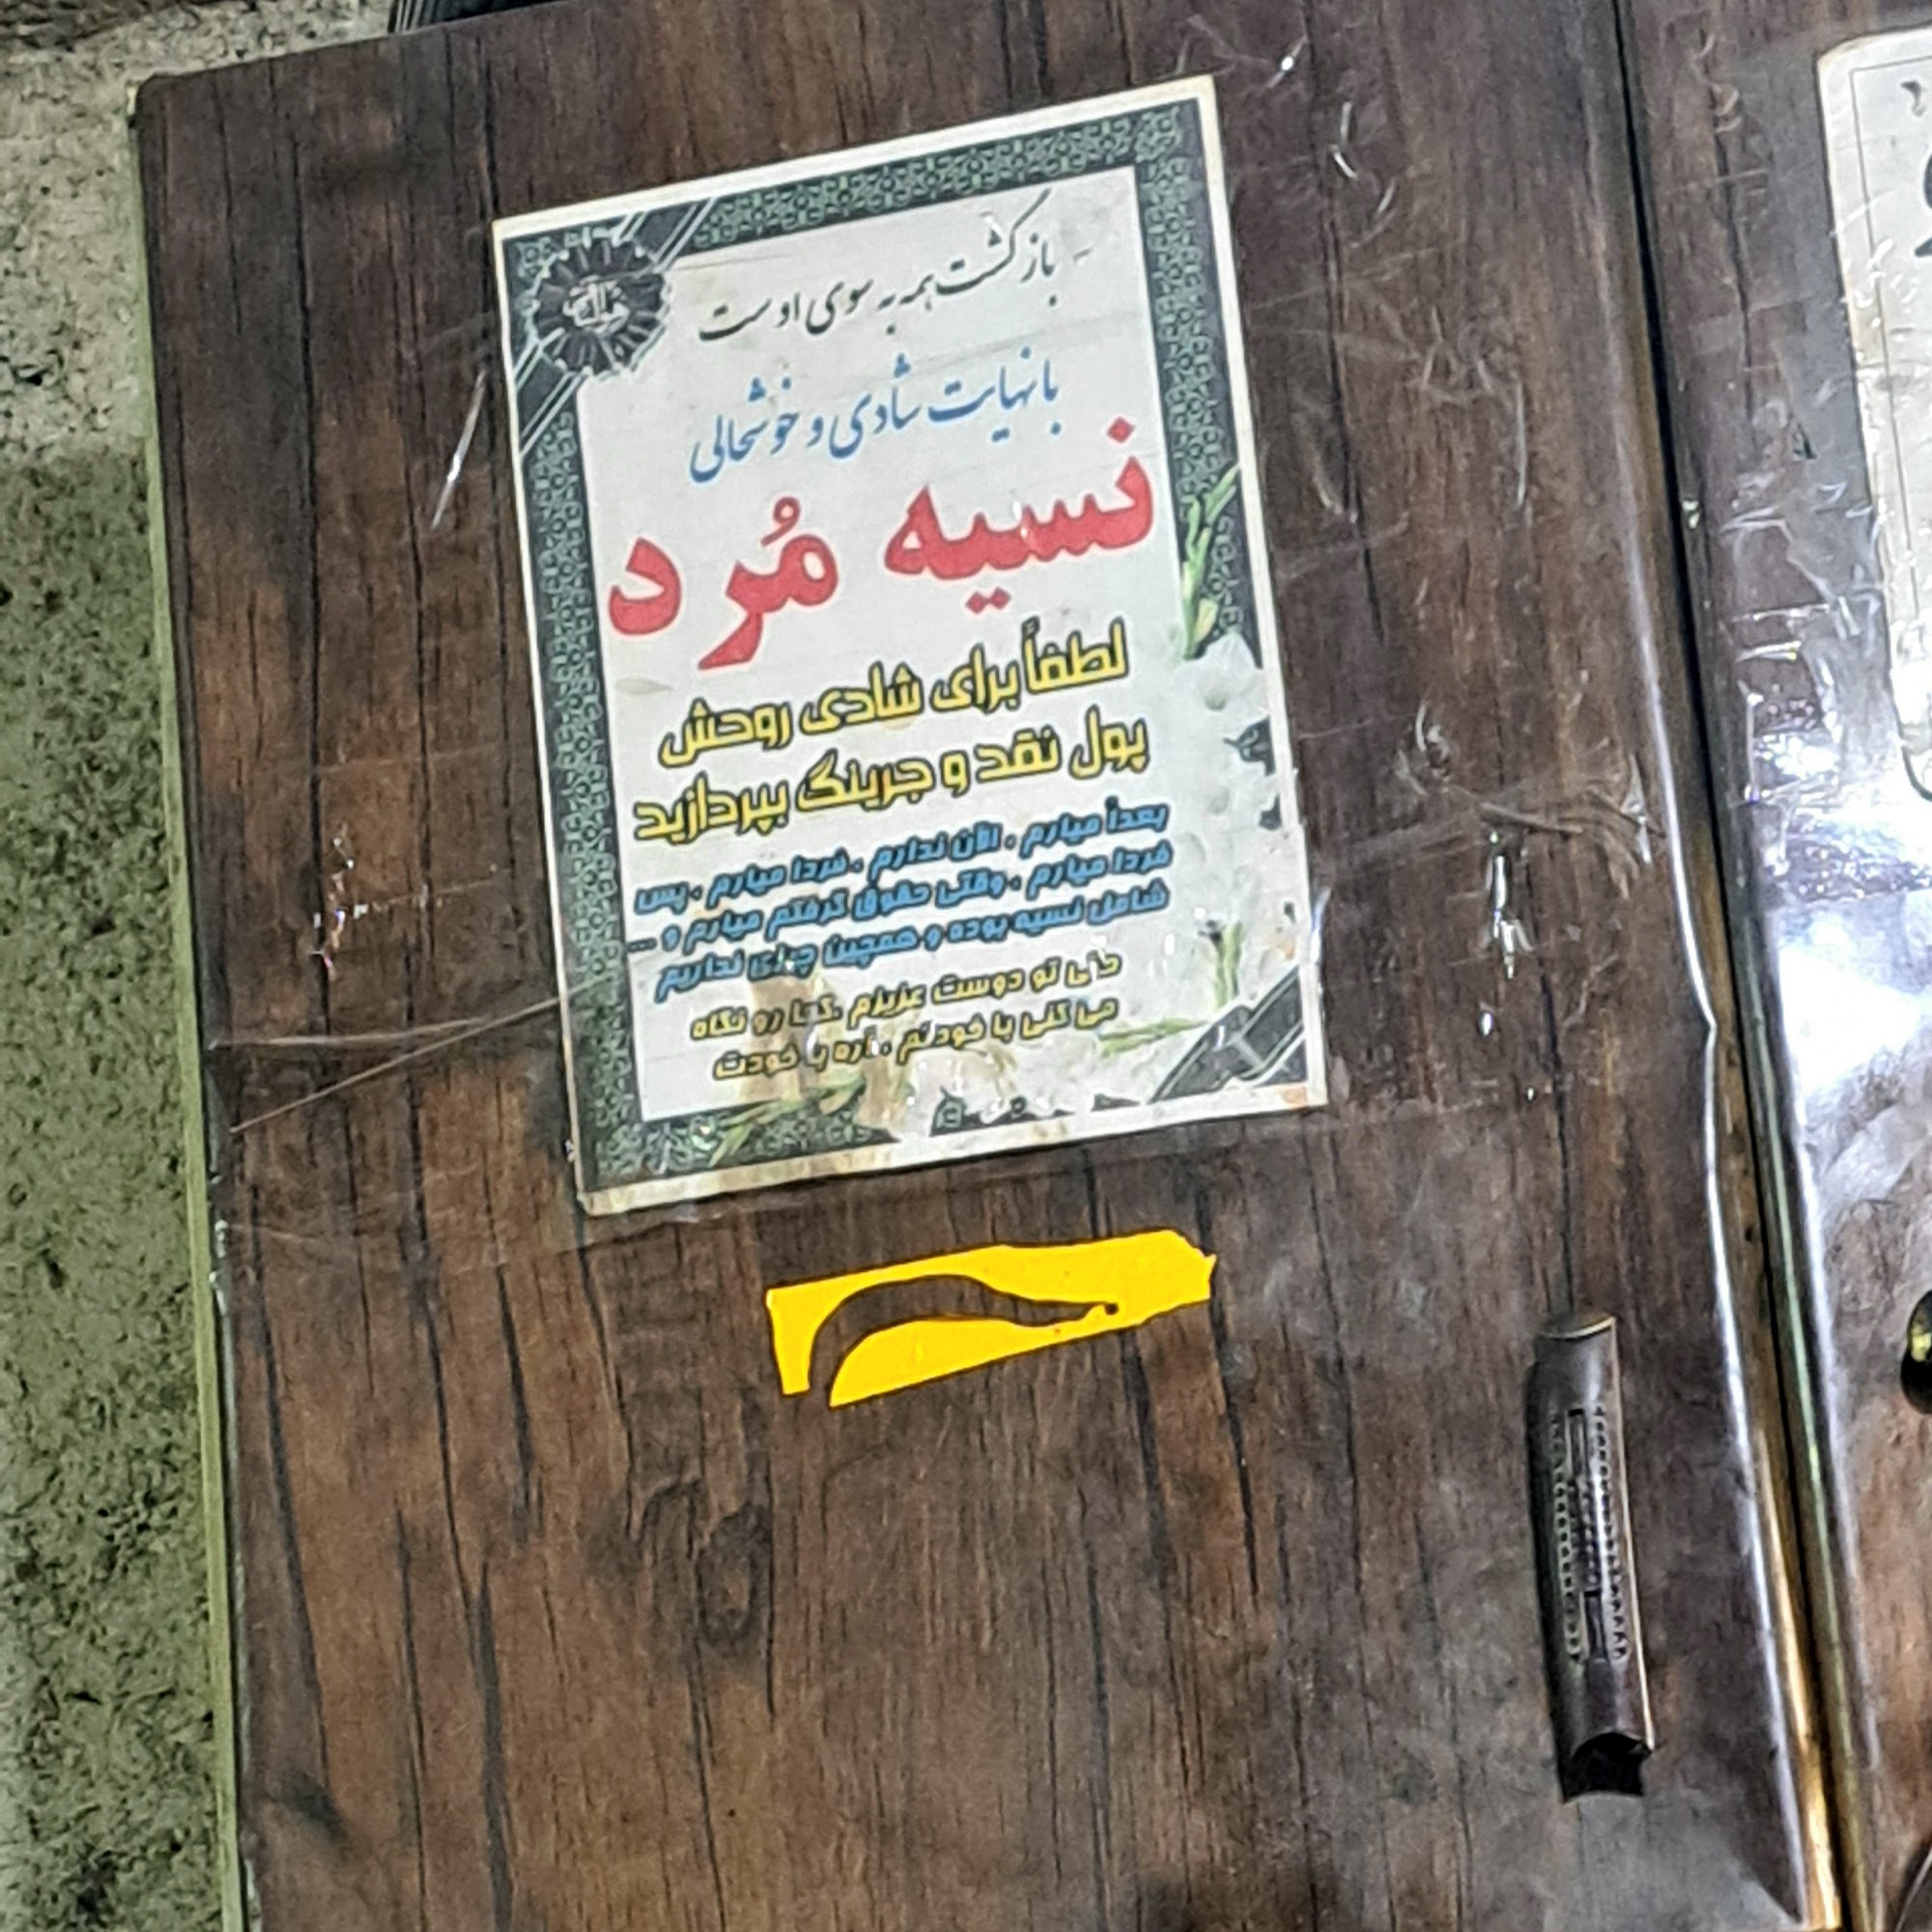 بازگشت همه به سوی اوست
با نهایت شادی و خوشحالی
نسیه مُرد
لطفاً برای شادی روحش
پول نقد و جرینگ بپردازید
بعداً میارم ، الآن ندارم ، فردا میارم ، پس
فردا میارم ، وقتی حقوق گرفتم میارم و ...
شامل نسیه بوده و همچین چیزی نداریم
حتی تو دوست عزیزم .کجا رو نگاه
می کنی با خودتم ، آره با خودت